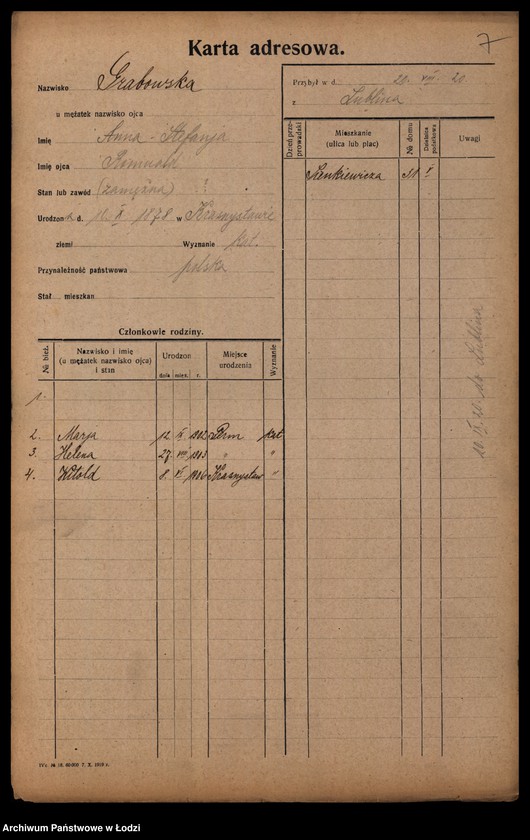 Karta adresowa.
7
Nazwisko Grabowska
u mężatek nazwisko ojca
Imię Anna-Stefanja
Imię ojca Romuald
Stan lub zawód (zamężna) ?
Urodzona d. X 1878 w Krasnystawie
ziemi Wyznanie kat.
Przynależność państwowa polska
Stał mieszkan
Przybył w d. 20 VIII 20
z Lublina
Dzień przeprowadzki
Mieszkanie (ulica lub plac)
№ domu
Dzielnica podatkowa
Uwagi
Sienkiewicza 31 V
10. IX. 20. do Lublina
Członkowie rodziny.
№ bież.
Nazwisko i imię (u mężatek nazwisko ojca) i stan
Urodzon
dnia mies. r.
Miejsce urodzenia
Wyznanie
1.
2. Marja 12 1902 Perm kat
3. Helena 27 VIII 1903 " "
4. Witold 8 VI 1906 Krasnystaw "
Archiwum Państwowe w Łodzi